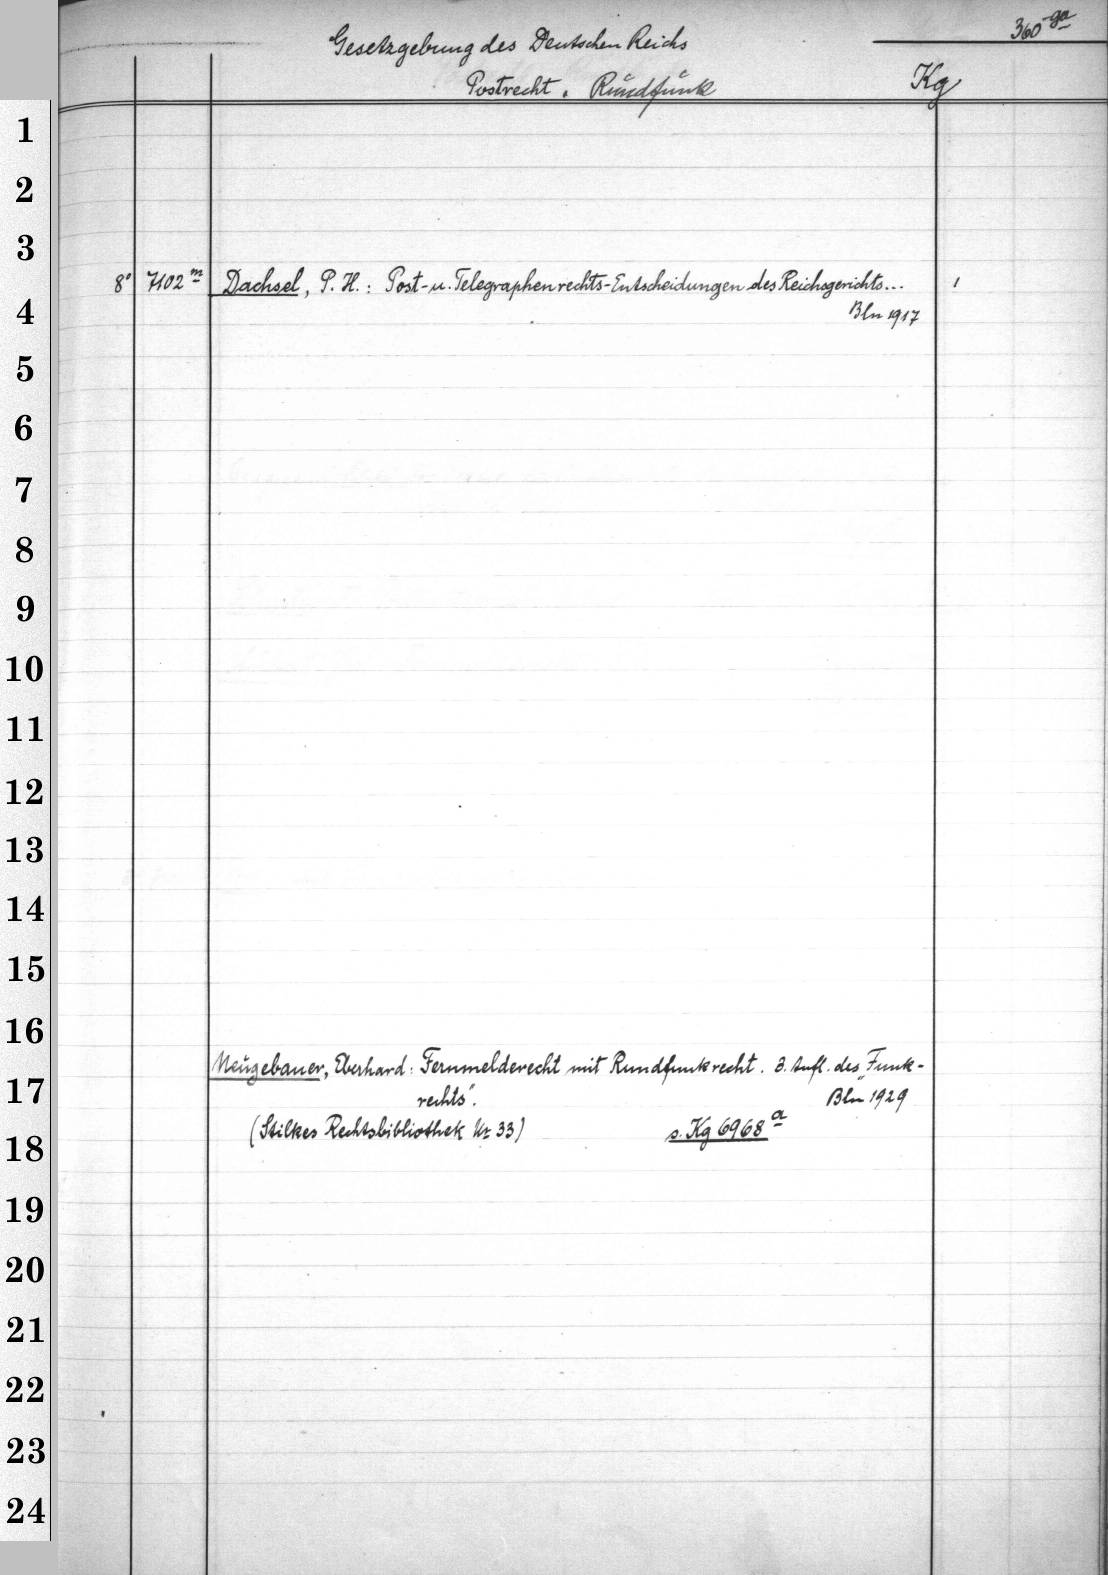 360-ga
Gesetzgebung des Deutschen Reichs
Postrecht. Rundfunk Kg
1
2
3
8° 7102 m Dachsel, P. H.: Post- u. Telegraphenrechts-Entscheidungen des Reichsgerichts... 1
4 Bln 1917
5
6
7
8
9
10
11
12
13
14
15
16
Neugebauer, Eberhard: Fernmelderecht mit Rundfunkrecht. 3. Aufl. des „Funk-
17 rechts". Bln 1929
18 (Stilkes Rechtsbibliothek Nr 33) s. Kg 6968 a
19
20
21
22
23
24